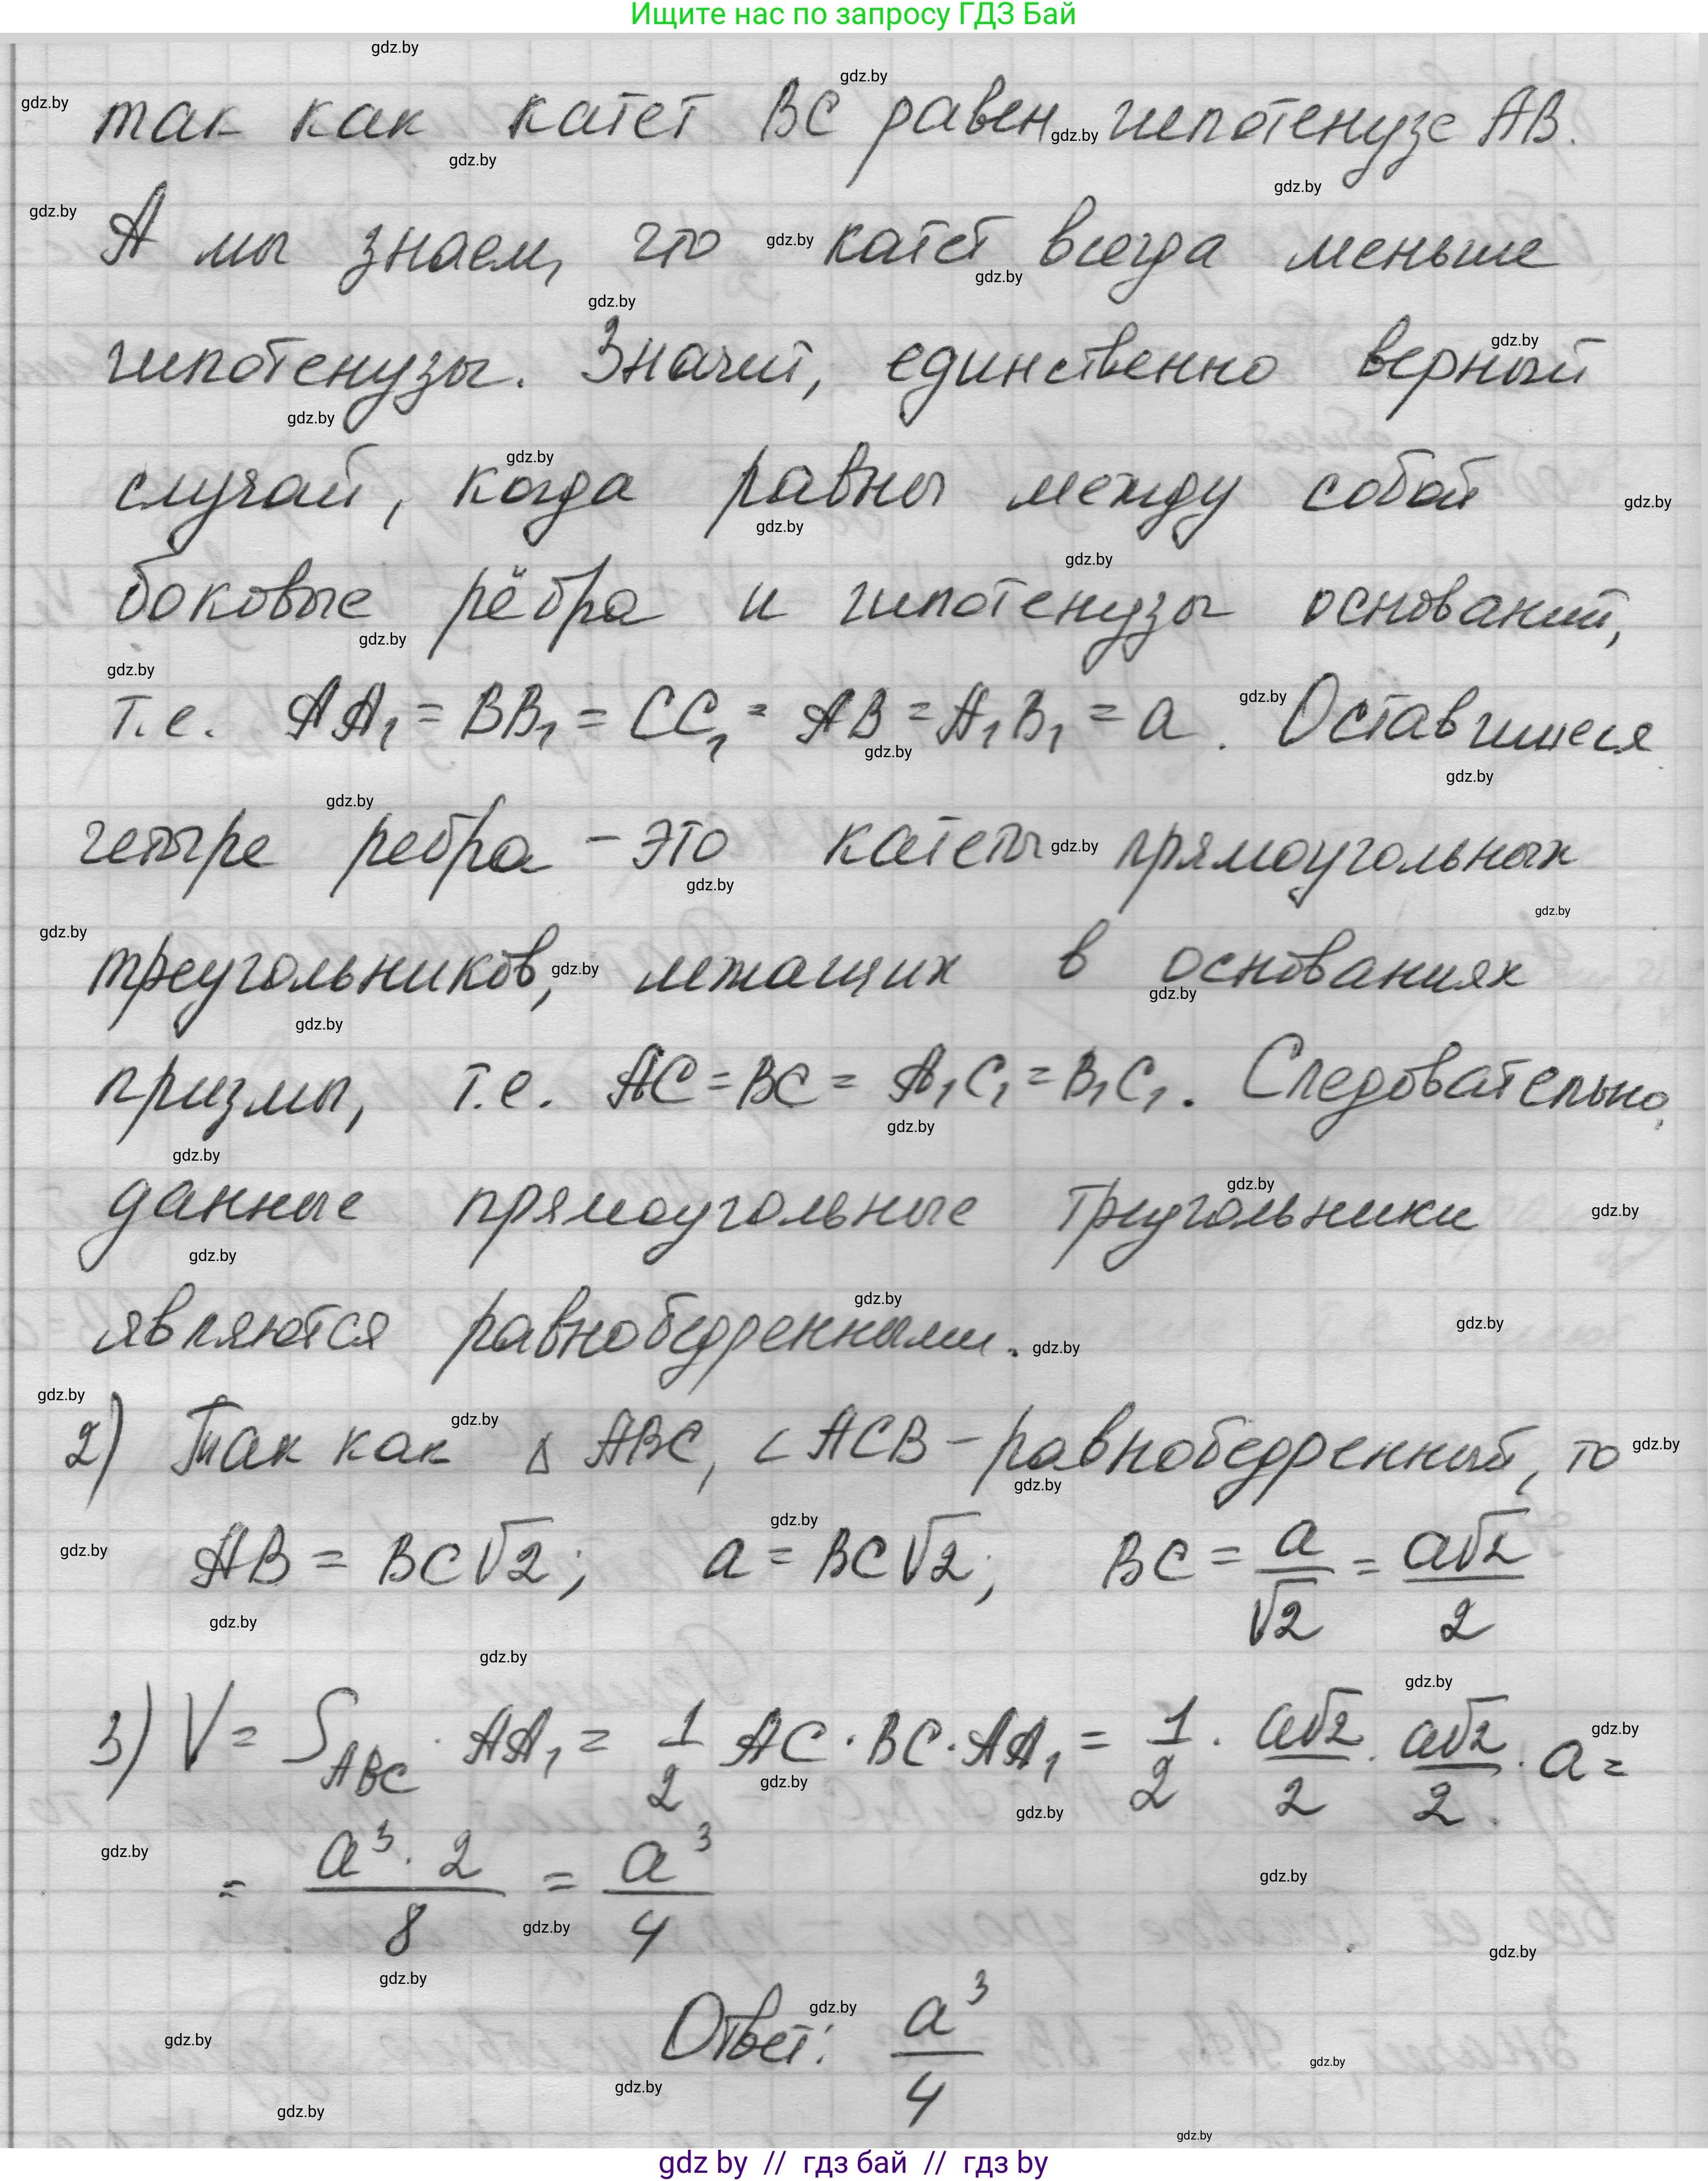 Ищите нас по запросу ГДЗ Бай
так как катет BC равен гипотенузе AB.
А мы знаем, что катет всегда меньше
гипотенузы. Значит, единственно верный
случай, когда равны между собой
боковые рёбра и гипотенузы оснований,
т.е. AA₁ = BB₁ = CC₁ = AB = A₁B₁ = a. Оставшиеся
четыре ребра - это катеты прямоугольных
треугольников, лежащих в основаниях
призмы, т.е. AC = BC = A₁C₁ = B₁C₁. Следовательно,
данные прямоугольные треугольники
являются равнобедренными.
2) Так как △ ABC, ∠ ACB - равнобедренный, то
AB = BC√2; a = BC√2; BC = a/√2 = a√2/2
3) V = S_ABC · AA₁ = 1/2 AC · BC · AA₁ = 1/2 · a√2/2 · a√2/2 · a =
= a³ · 2/8 = a³/4
Ответ: a³/4
gdz by // гдз бай // гдз by